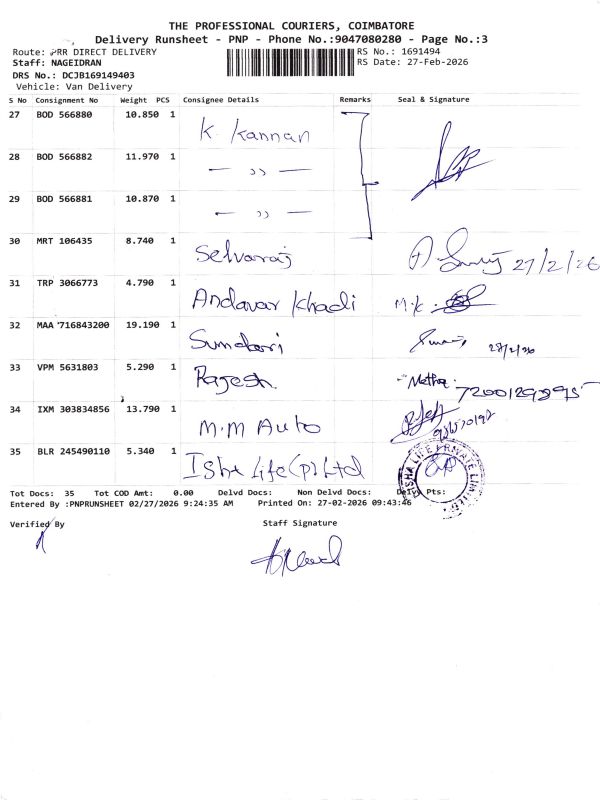 THE PROFESSIONAL COURIERS, COIMBATORE
Delivery Runsheet - PNP - Phone No.:9047080280 - Page No.:3
Route: PRR DIRECT DELIVERY RS No.: 1691494
Staff: NAGEIDRAN RS Date: 27-Feb-2026
DRS No.: DCJB169149403
Vehicle: Van Delivery
S No Consignment No Weight PCS Consignee Details Remarks Seal & Signature
27 BOD 566880 10.850 1 K. Kannan
28 BOD 566882 11.970 1 — ,, —
29 BOD 566881 10.870 1 — ,, —
30 MRT 106435 8.740 1 Selvaraj 27/2/26
31 TRP 3066773 4.790 1 Andavar Khadi M.K.
32 MAA 716843200 19.190 1 Sundari
33 VPM 5631803 5.290 1 Rajesh.
34 IXM 303834856 13.790 1 M.M Auto
35 BLR 245490110 5.340 1 Isha Life (P) Ltd
ISHA LIFE PRIVATE LIMITED
Tot Docs: 35 Tot COD Amt: 0.00 Delvd Docs: Non Delvd Docs: Delvd Pts:
Entered By :PNPRUNSHEET 02/27/2026 9:24:35 AM Printed On: 27-02-2026 09:43:46
Verified By Staff Signature